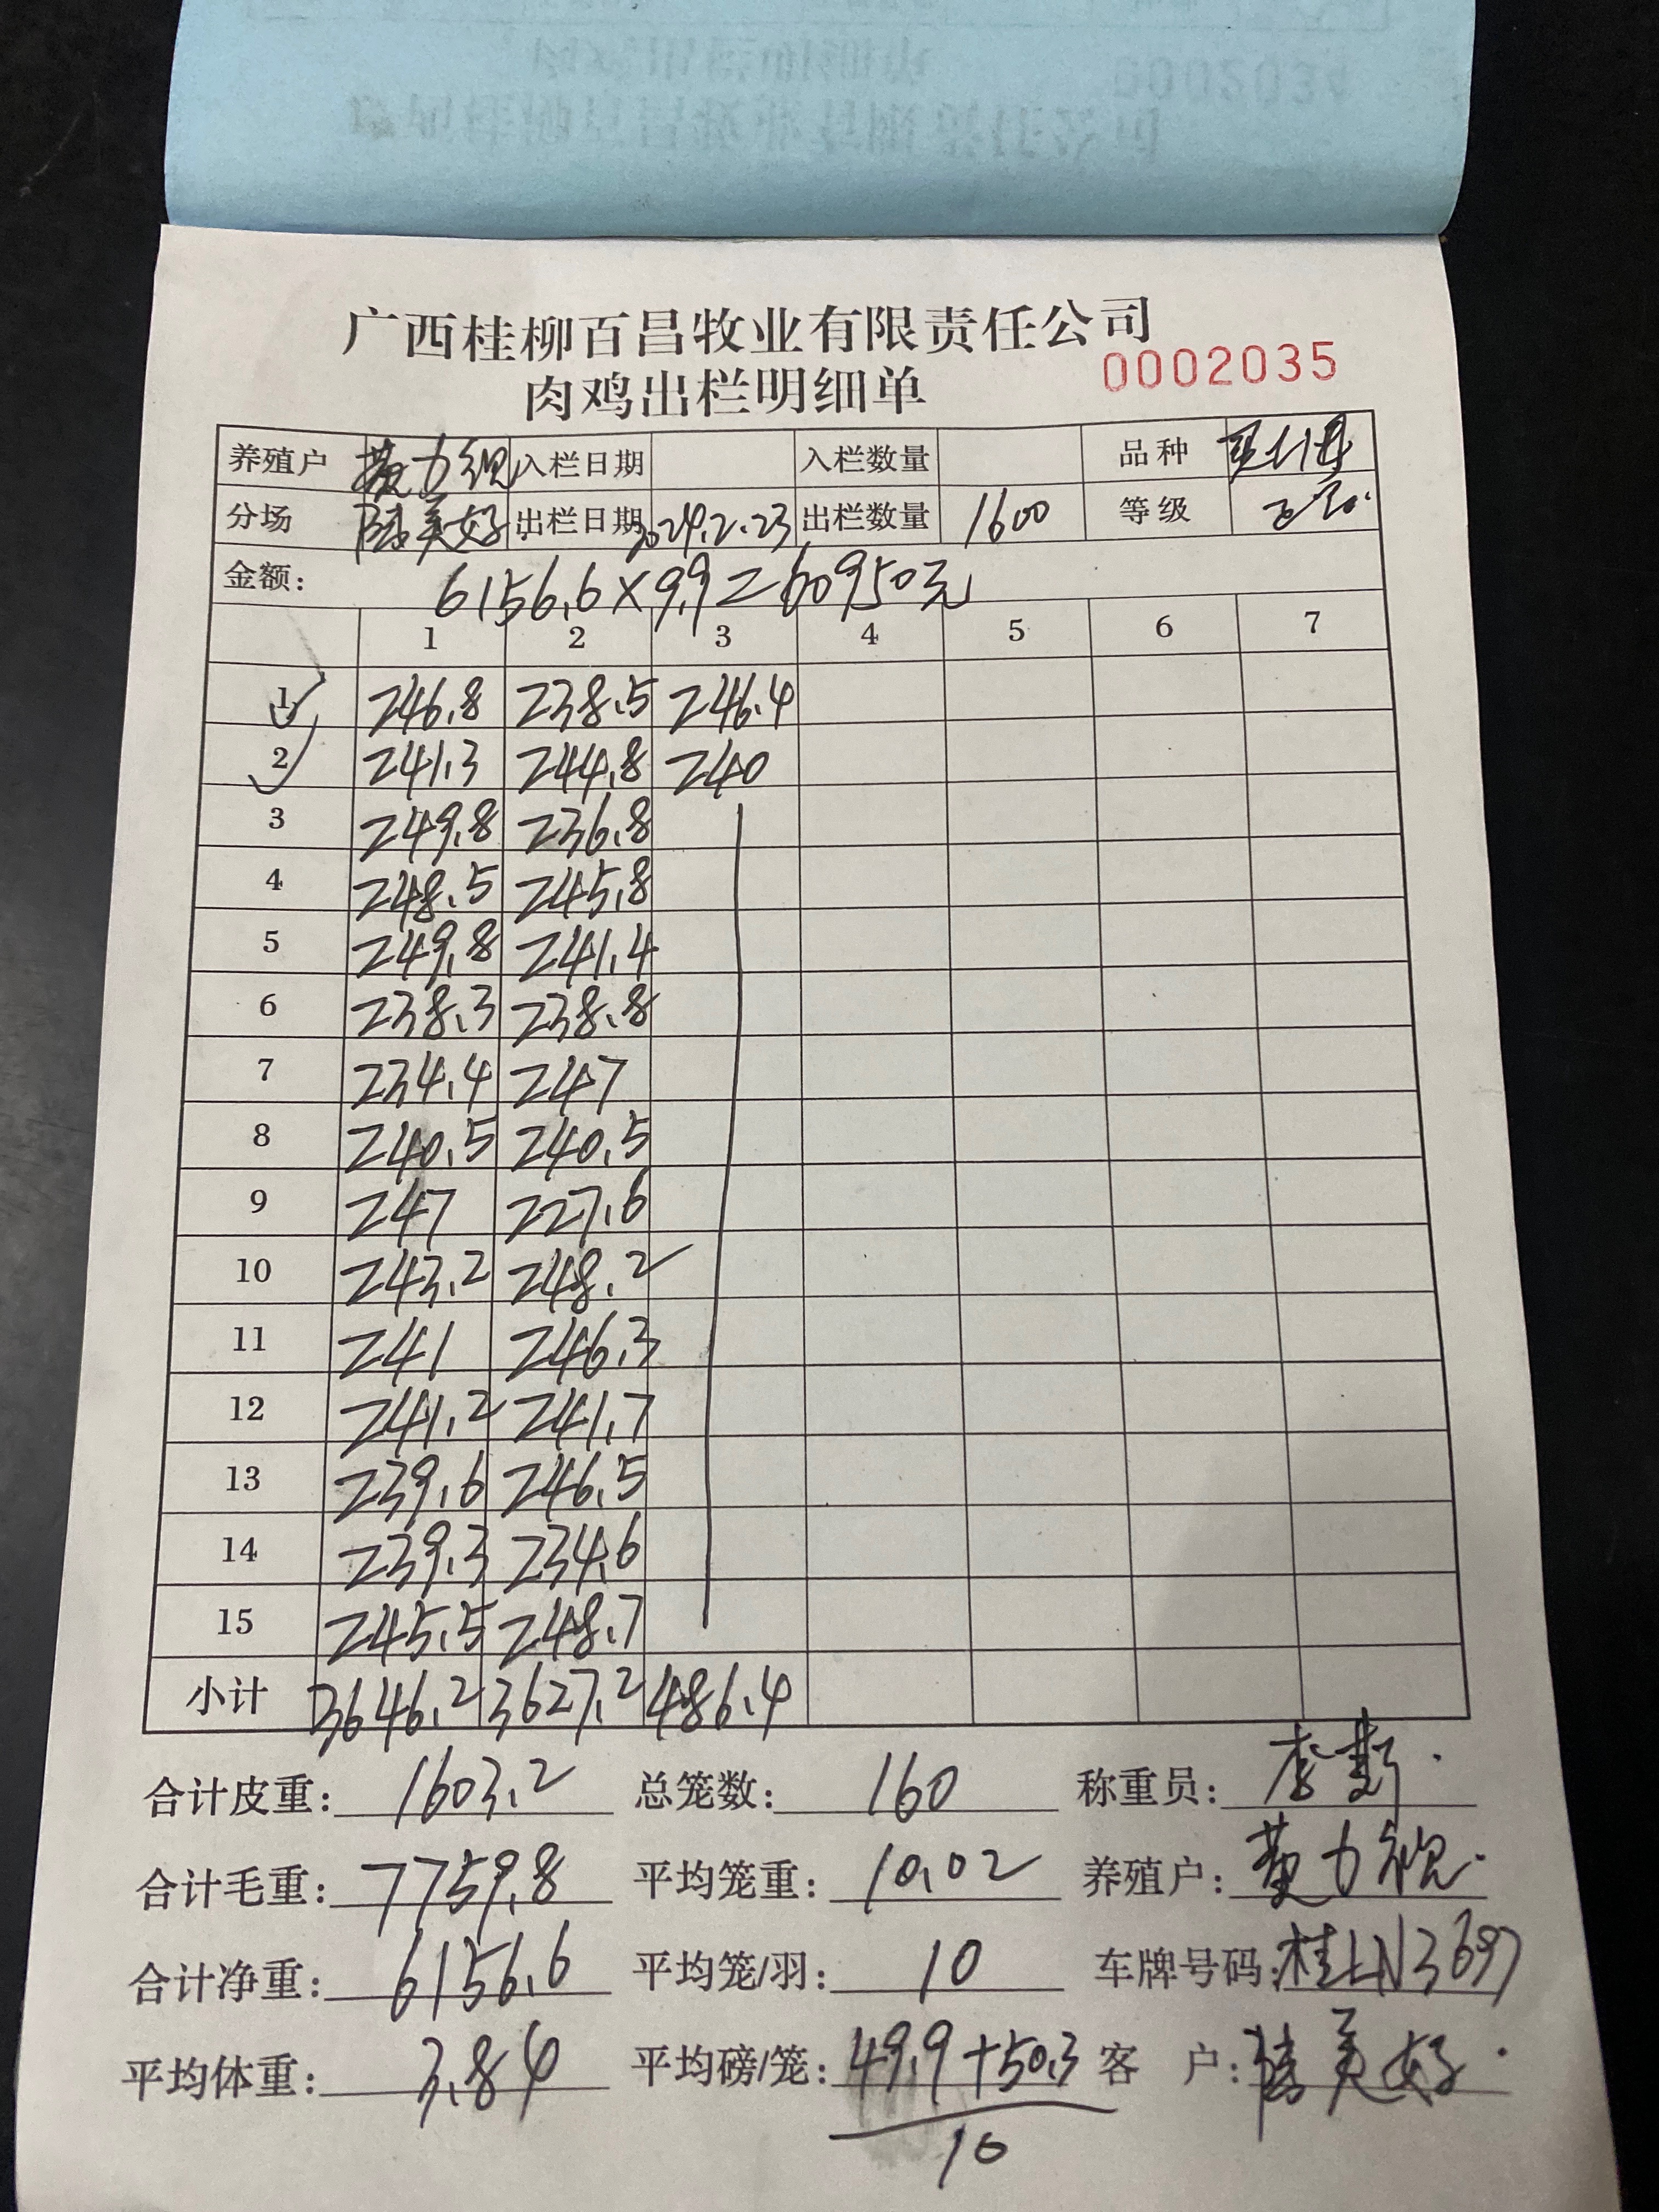 广西桂柳百昌牧业有限责任公司
肉鸡出栏明细单 0002035
养殖户 力 入栏日期 入栏数量 品种
分场 陆美好 出栏日期 2024.2.23 出栏数量 1600 等级
金额: 6156.6×9.9=60950元
1 2 3 4 5 6 7
1 246.8 238.5 246.4
2 241.3 244.8 240
3 249.8 236.8
4 248.5 245.8
5 249.8 241.4
6 238.3 238.8
7 234.4 247
8 240.5 240.5
9 247 227.6
10 243.2 248.2
11 241 246.3
12 241.2 241.7
13 239.6 246.5
14 239.3 234.6
15 245.5 248.7
小计 3646.2 3627.2 486.4
合计皮重: 1603.2 总笼数: 160 称重员: 李
合计毛重: 7759.8 平均笼重: 10.02 养殖户: 力
合计净重: 6156.6 平均笼/羽: 10 车牌号码: 桂LN3697
平均体重: 3.84 平均磅/笼: 49.9+50.3 客 户: 陆美好
10